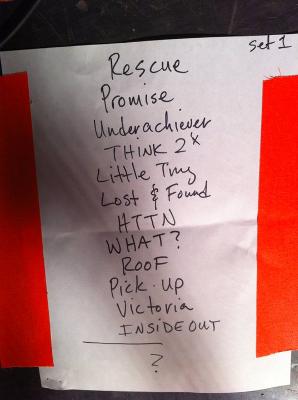 set 1
Rescue
Promise
Underachiever
THINK 2x
Little Tiny
Lost & Found
HTTN
WHAT?
ROOF
Pick-up
Victoria
INSIDEOUT
?